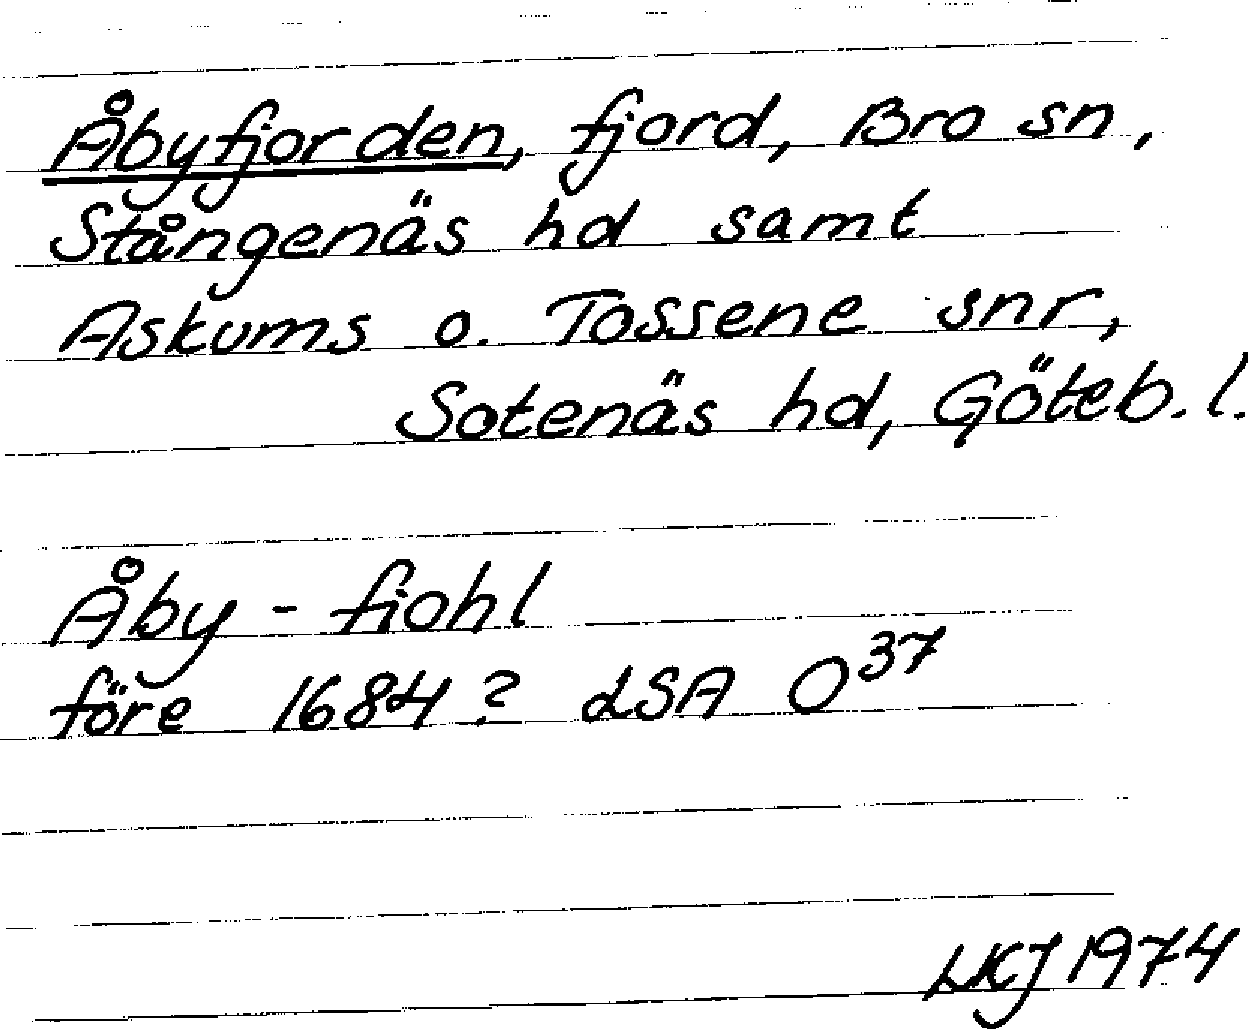 Åbyfjorden, fjord, Bro sn,
Stångenäs hd samt
Askums o. Tossene snr,
Sotenäs hd, Göteb. l.
Åby - fiohl
före 1684? LSA O³⁷
LKJ 1974